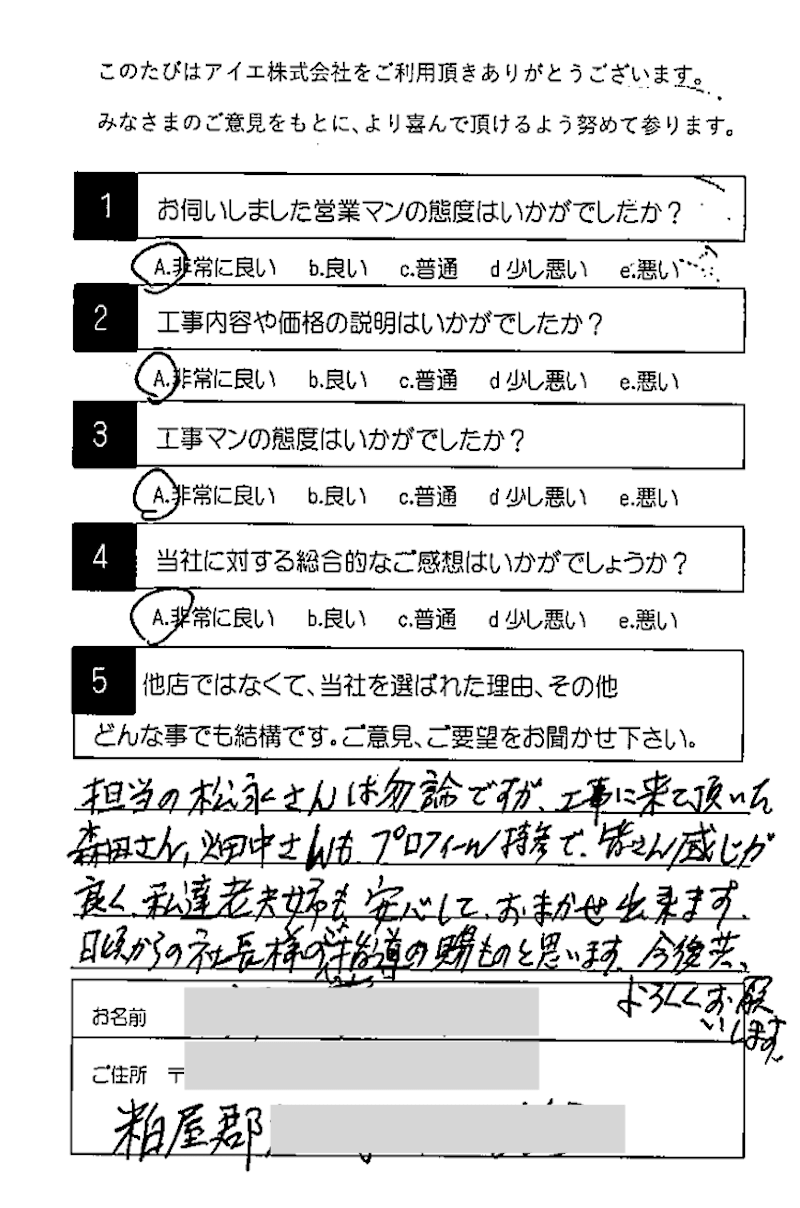 このたびはアイエ株式会社をご利用頂きありがとうございます。
みなさまのご意見をもとに、より喜んで頂けるよう努めて参ります。
1 お伺いしました営業マンの態度はいかがでしたか?
A.非常に良い b.良い c.普通 d 少し悪い e.悪い
2 工事内容や価格の説明はいかがでしたか?
A.非常に良い b.良い c.普通 d 少し悪い e.悪い
3 工事マンの態度はいかがでしたか?
A.非常に良い b.良い c.普通 d 少し悪い e.悪い
4 当社に対する総合的なご感想はいかがでしょうか?
A.非常に良い b.良い c.普通 d 少し悪い e.悪い
5 他店ではなくて、当社を選ばれた理由、その他
どんな事でも結構です。ご意見、ご要望をお聞かせ下さい。
担当の松永さんは勿論ですが、工事に来て頂いた
森田さん、畑中さんも プロフィール持参で、皆さん感じが
良く、私達老夫婦も 安心して、おまかせ出来ます、
日頃からの社長様の指導の賜ものと思います、今後共、
よろしくお願
いします、
お名前
ご住所 〒
粕屋郡